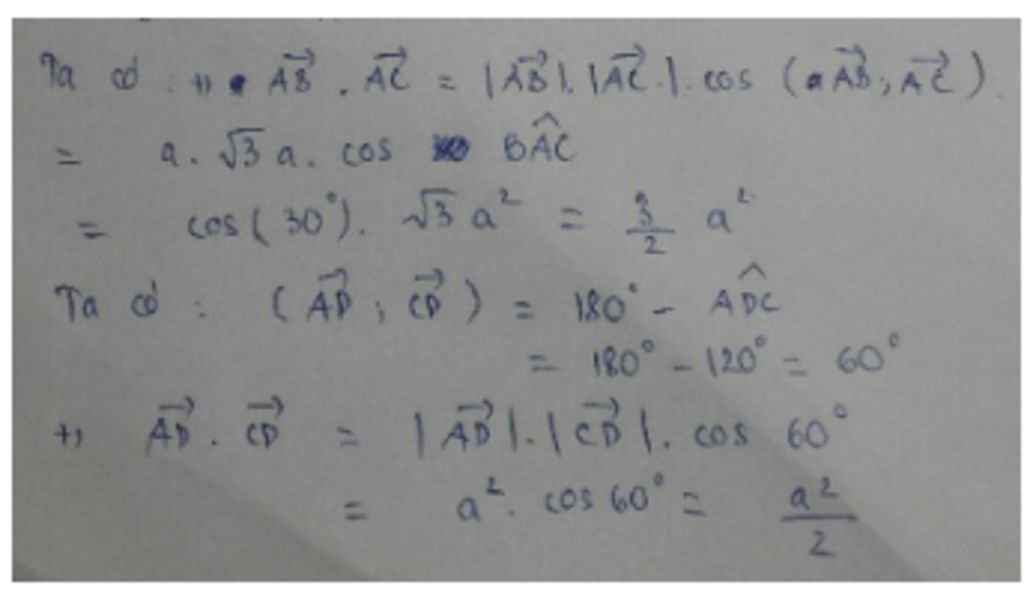 Ta có : +) AB⃗ . AC⃗ = |AB⃗|. |AC⃗|. cos (AB⃗; AC⃗)
= a. √3 a. cos BÂC
= cos(30°). √3 a² = 3/2 a²
Ta có : (AD⃗; CD⃗) = 180° - AD̂C
= 180° - 120° = 60°
+) AD⃗ . CD⃗ = |AD⃗|.|CD⃗|. cos 60°
= a². cos 60° = a²/2